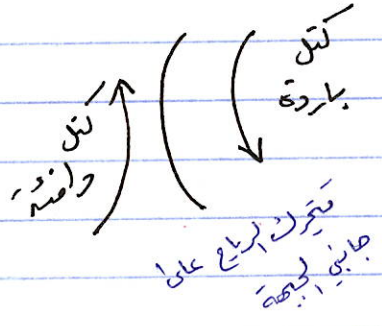 كتل
باردة
كتل
دافئة
فتتحرك الرياح على
جانبي الجبهة